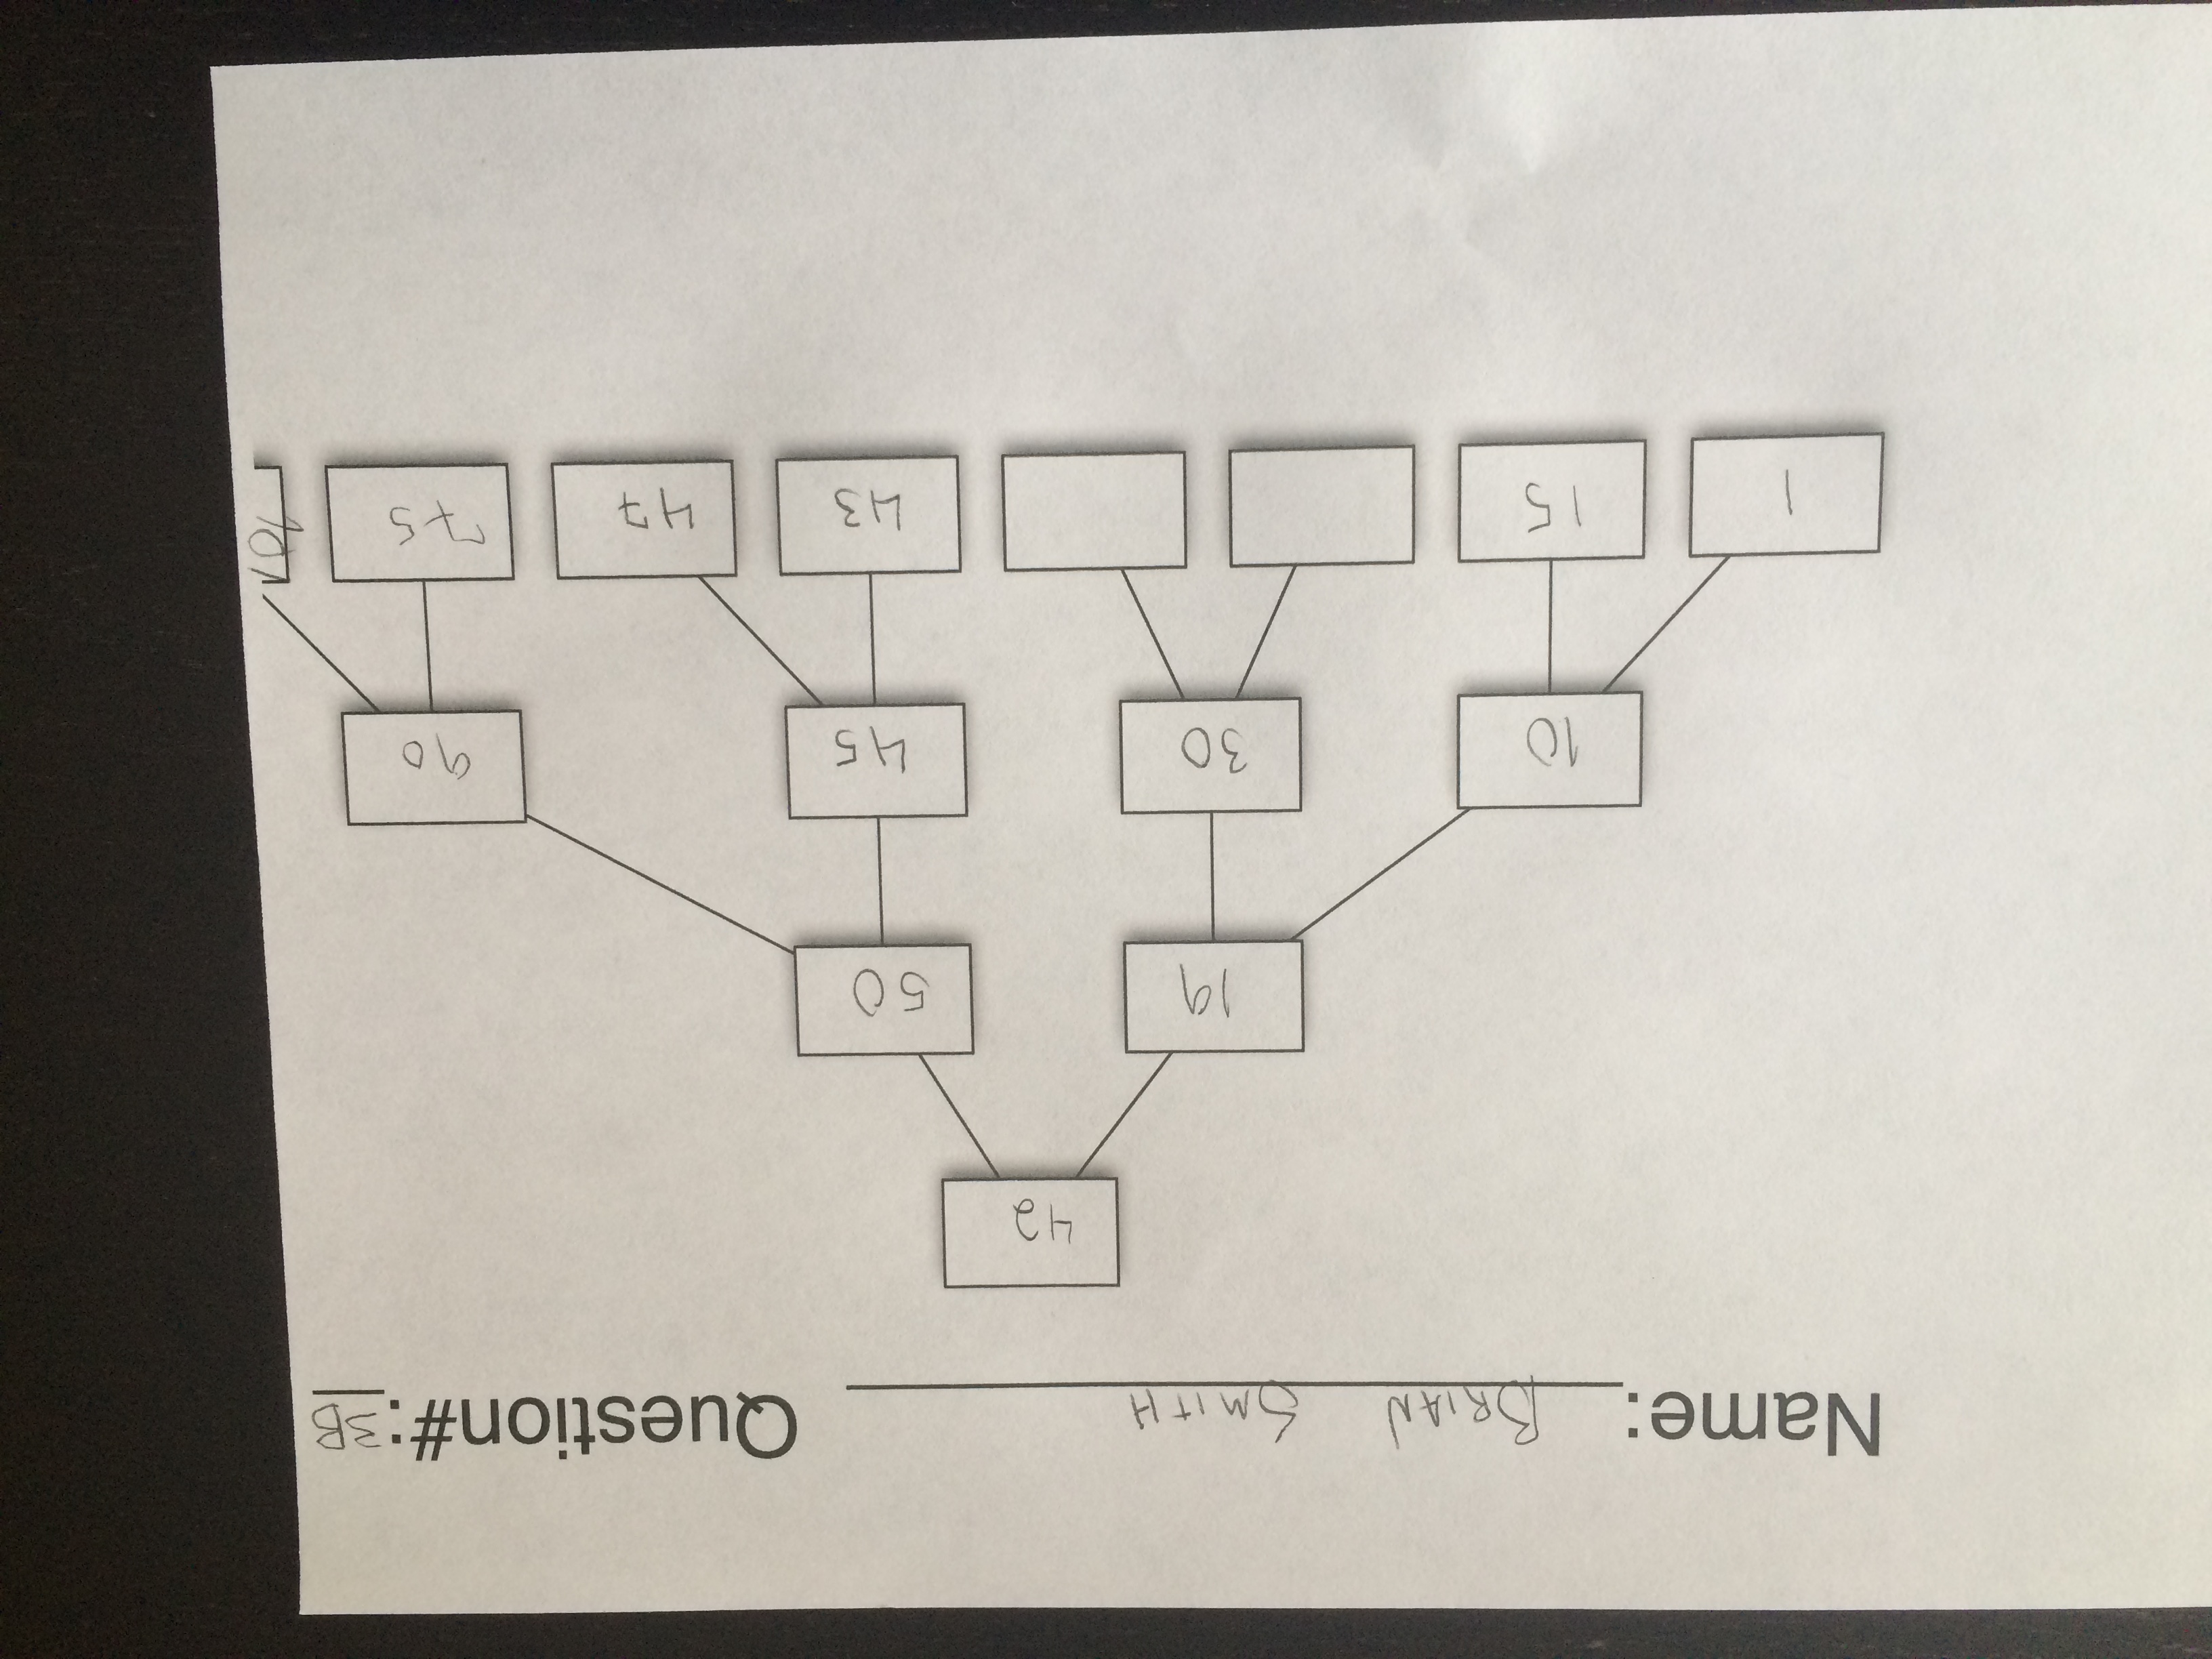 Name: BRIAN SMITH Question#: 3B
42
19 50
10 30 45 90
1 15 43 47 75 101